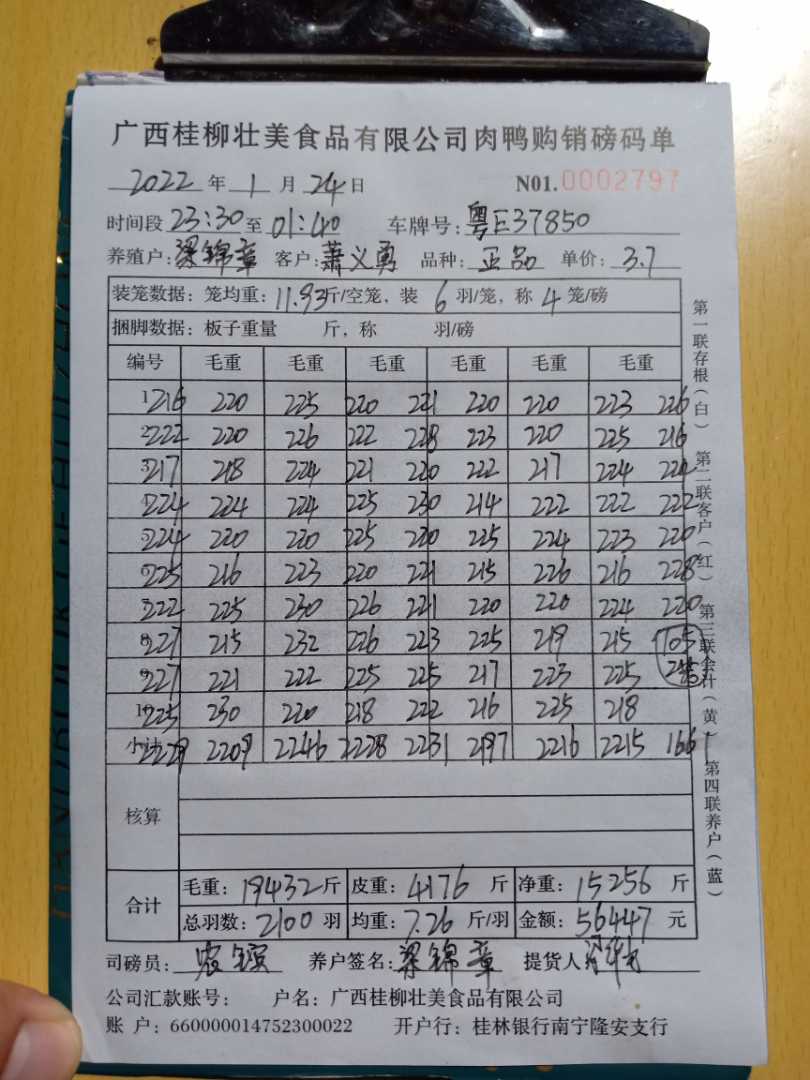 广西桂柳壮美食品有限公司肉鸭购销磅码单
2022 年 1 月 24 日 N01.0002797
时间段 23:30 至 01:40 车牌号: 粤E37850
养殖户: 梁锦章 客户: 萧义勇 品种: 正品 单价: 3.7
装笼数据: 笼均重: 11.93 斤/空笼, 装 6 羽/笼, 称 4 笼/磅
捆脚数据: 板子重量 斤, 称 羽/磅
编号 毛重 毛重 毛重 毛重 毛重 毛重
1 216 220 225 220 221 220 220 223 226
2 222 220 226 222 228 223 220 225 216
3 217 218 224 221 220 222 217 224 224
4 224 224 224 225 230 214 222 222 222
5 224 220 220 225 220 225 224 223 220
6 225 216 223 220 221 215 226 216 228
7 222 225 230 226 221 220 220 224 220
8 227 215 232 226 223 225 219 215 105
9 227 221 222 225 225 217 223 225
10 225 230 220 218 222 216 225 218
小计 2229 2209 2246 2228 2231 2197 2216 2215 1661
核算
合计
毛重: 19432 斤 皮重: 4176 斤 净重: 15256 斤
总羽数: 2100 羽 均重: 7.26 斤/羽 金额: 56447 元
司磅员: 养户签名: 梁锦章 提货人
公司汇款账号: 户名: 广西桂柳壮美食品有限公司
账 户: 660000014752300022 开户行: 桂林银行南宁隆安支行
第一联存根(白) 第二联客户(红) 第三联会计(黄) 第四联养户(蓝)